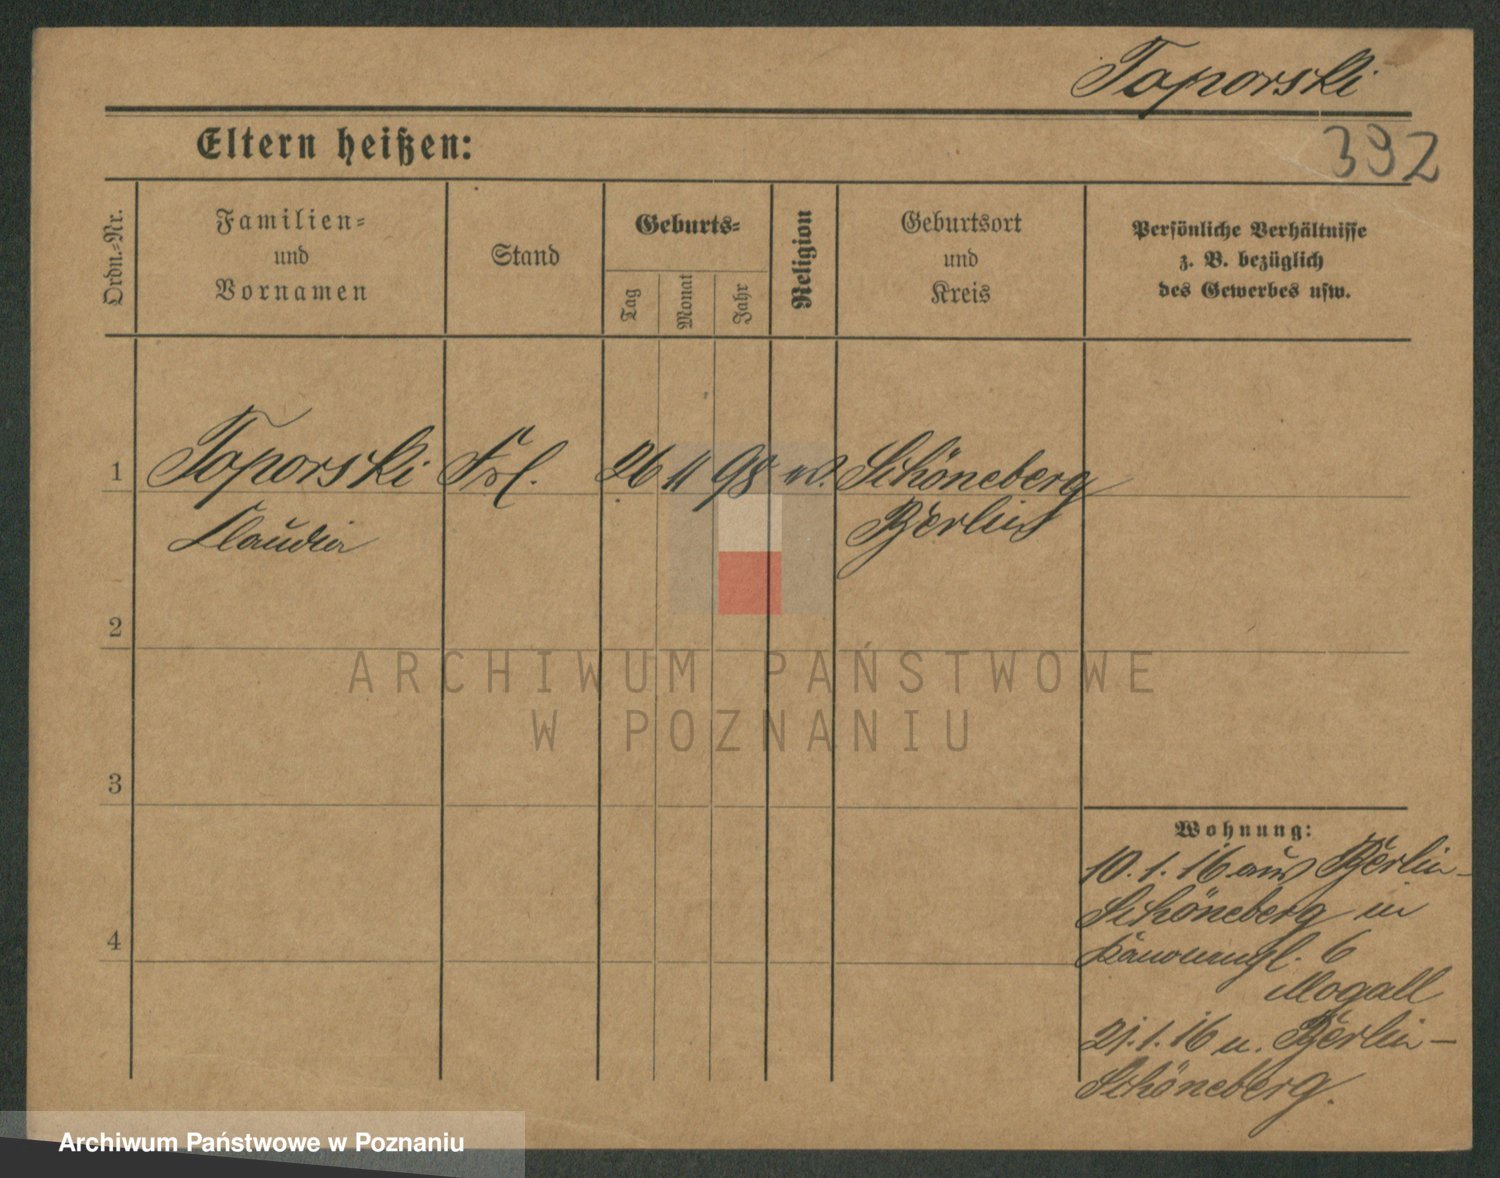 Toporski
392
Eltern heißen:
Ordn.-Nr.
Familien-
und
Vornamen
Stand
Geburts-
Tag
Monat
Jahr
Religion
Geburtsort
und
Kreis
Persönliche Verhältnisse
z. B. bezüglich
des Gewerbes usw.
1 Toporski Frl. 26 11 98 Schöneberg
Claudia Berlin
2
3
4
Wohnung:
10.1.16 aus Berlin-
Schöneberg in
6
Mogall
21.1.16 n. Berlin-
Schöneberg.
ARCHIWUM PAŃSTWOWE
W POZNANIU
Archiwum Państwowe w Poznaniu